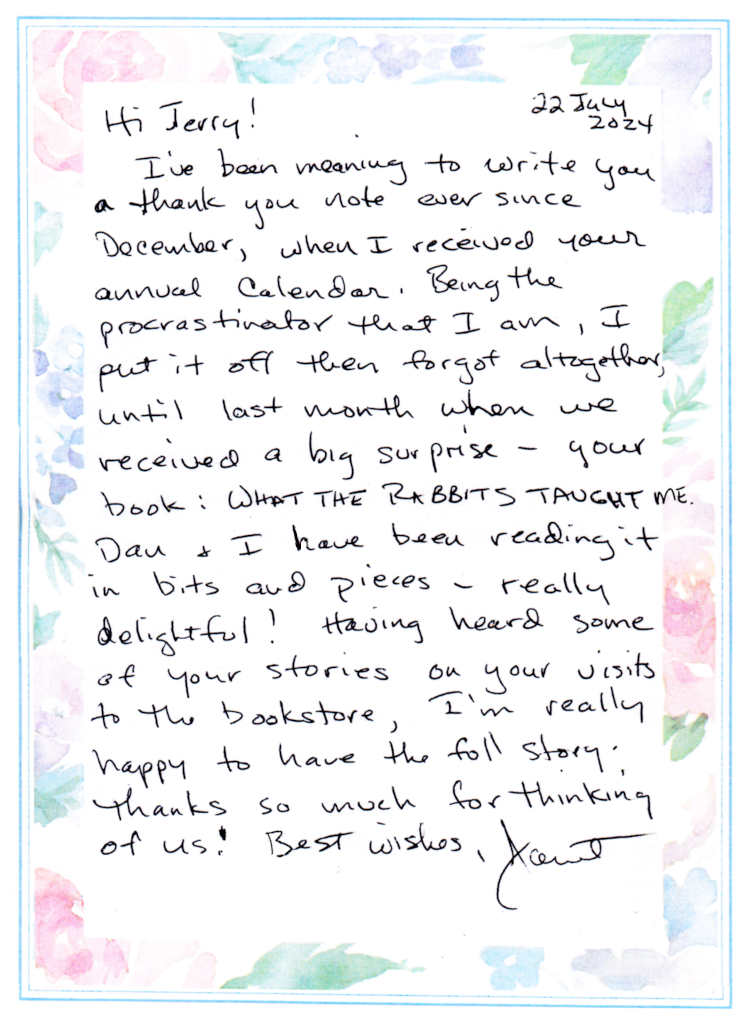 22 July
2024
Hi Jerry!
I've been meaning to write you
a thank you note ever since
December, when I received your
annual Calendar. Being the
procrastinator that I am, I
put it off then forgot altogether,
until last month when we
received a big surprise – your
book: WHAT THE RABBITS TAUGHT ME.
Dan & I have been reading it
in bits and pieces – really
delightful! Having heard some
of your stories on your visits
to the bookstore, I'm really
happy to have the full story.
Thanks so much for thinking
of us! Best wishes, Janet